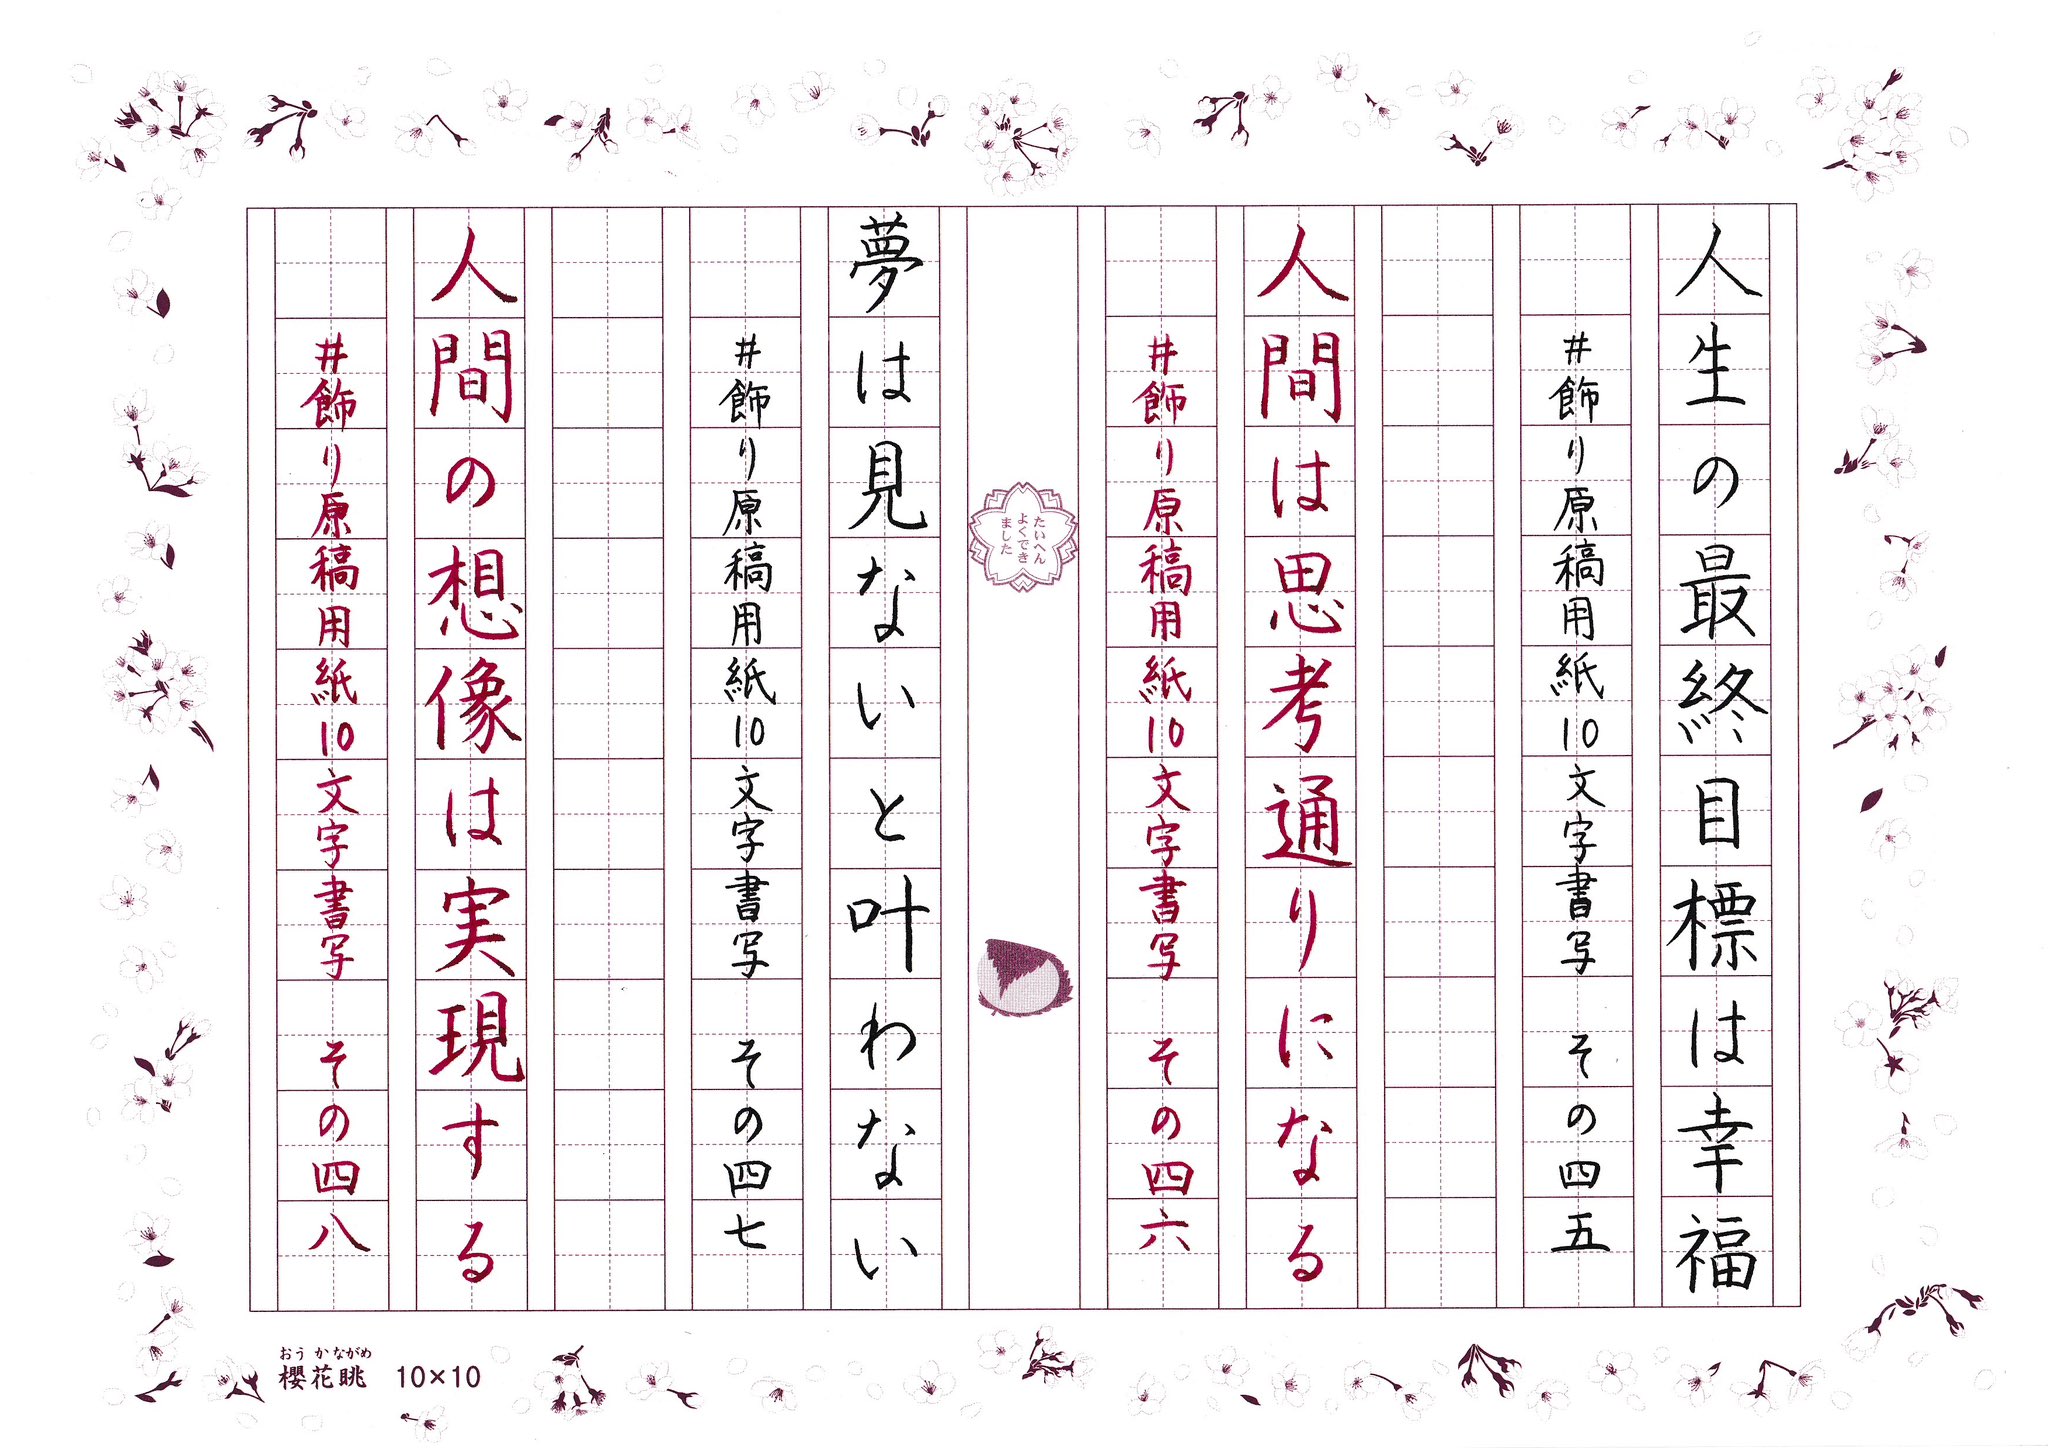 人生の最終目標は幸福
#飾り原稿用紙10文字書写 その四五
人間は思考通りになる
#飾り原稿用紙10文字書写 その四六
たいへん
よくでき
ました
夢は見ないと叶わない
#飾り原稿用紙10文字書写 その四七
人間の想像は実現する
#飾り原稿用紙10文字書写 その四八
おうかながめ
櫻花眺 10×10